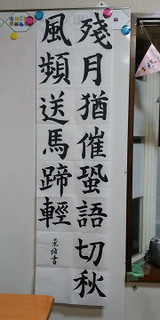 殘月猶催蛩語切秋
風頻送馬蹄輕